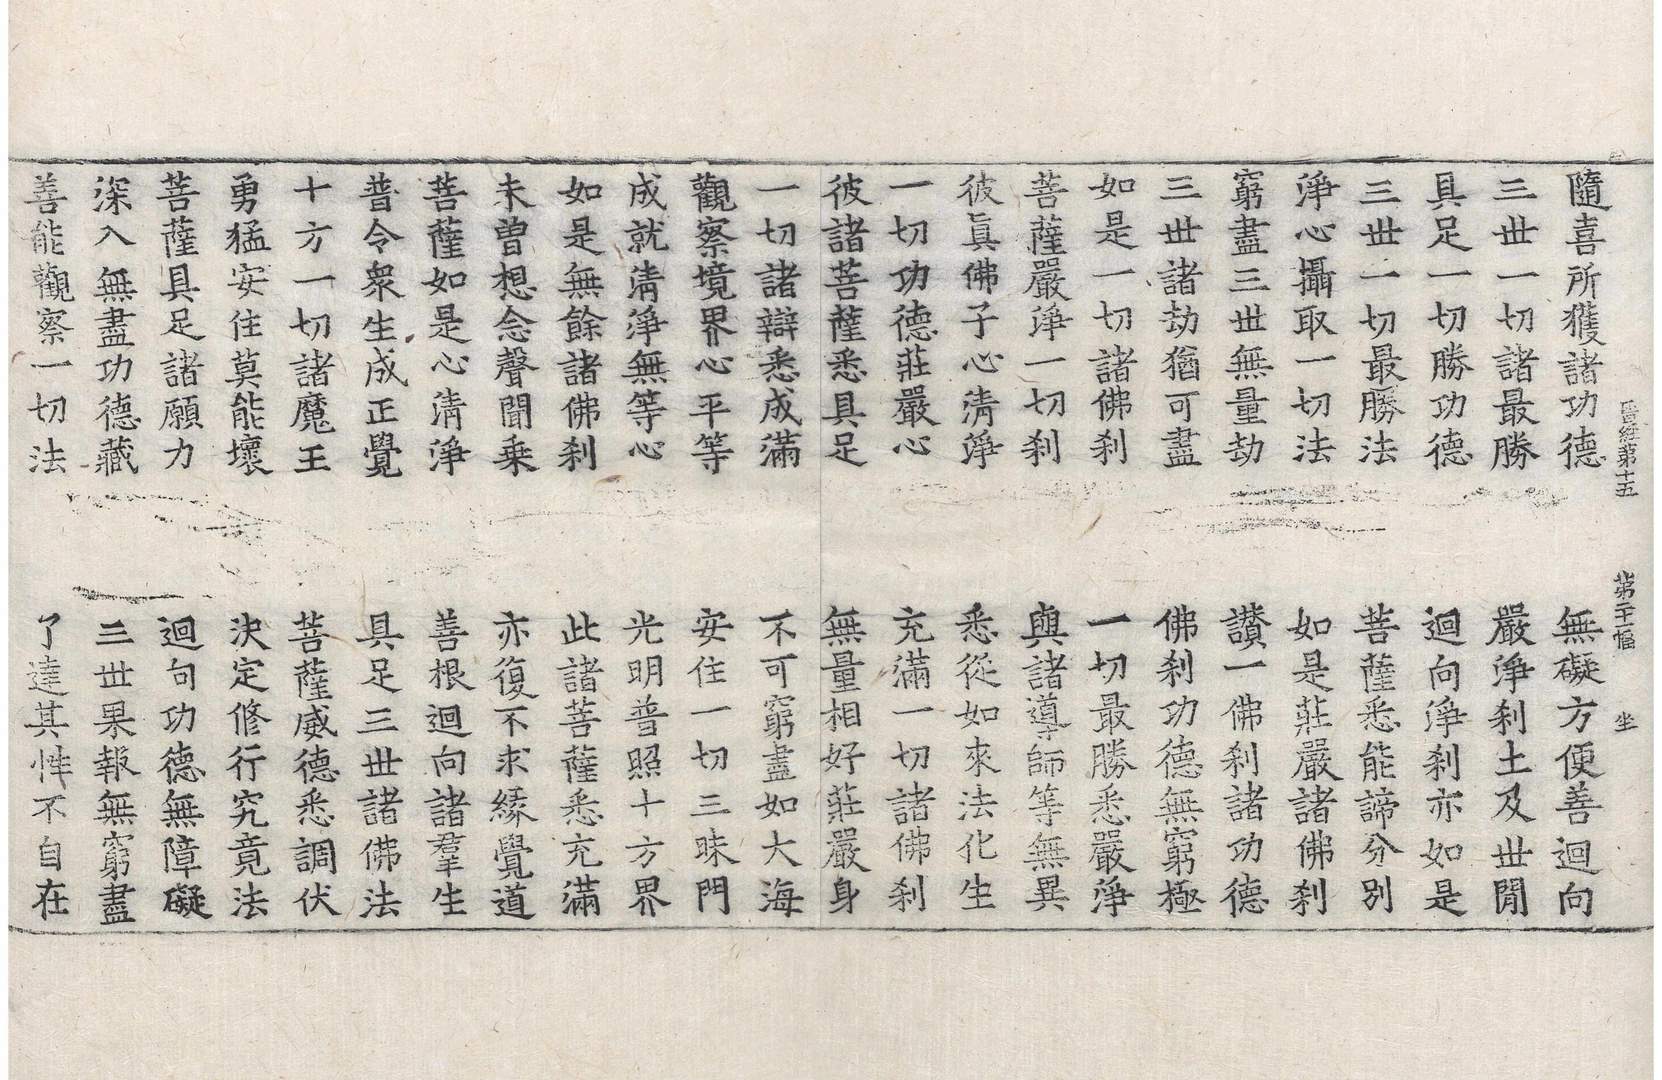 晉經第十五　第二十二幅　坐
隨喜所獲諸功德　無礙方便善迴向
三世一切諸最勝　嚴淨刹土及世閒
具足一切勝功德　迴向淨刹亦如是
三世一切最勝法　菩薩悉能諦分別
淨心攝取一切法　如是莊嚴諸佛刹
窮盡三世無量劫　讚一佛刹諸功德
三世諸劫猶可盡　佛刹功德無窮極
如是一切諸佛刹　一切最勝悉嚴淨
菩薩嚴淨一切刹　與諸導師等無異
彼眞佛子心清淨　悉從如來法化生
一切功德莊嚴心　充滿一切諸佛刹
彼諸菩薩悉具足　無量相好莊嚴身
一切諸辯悉成滿　不可窮盡如大海
觀察境界心平等　安住一切三昧門
成就清淨無等心　光明普照十方界
如是無餘諸佛刹　此諸菩薩悉充滿
未曾想念聲聞乗　亦復不求緣覺道
菩薩如是心清淨　善根迴向諸羣生
普令衆生成正覺　具足三世諸佛法
十方一切諸魔王　菩薩威德悉調伏
勇猛安住莫能壞　決定修行究竟法
菩薩具足諸願力　迴向功德無障礙
深入無盡功德藏　三世果報無窮盡
善能觀察一切法　了達其性不自在